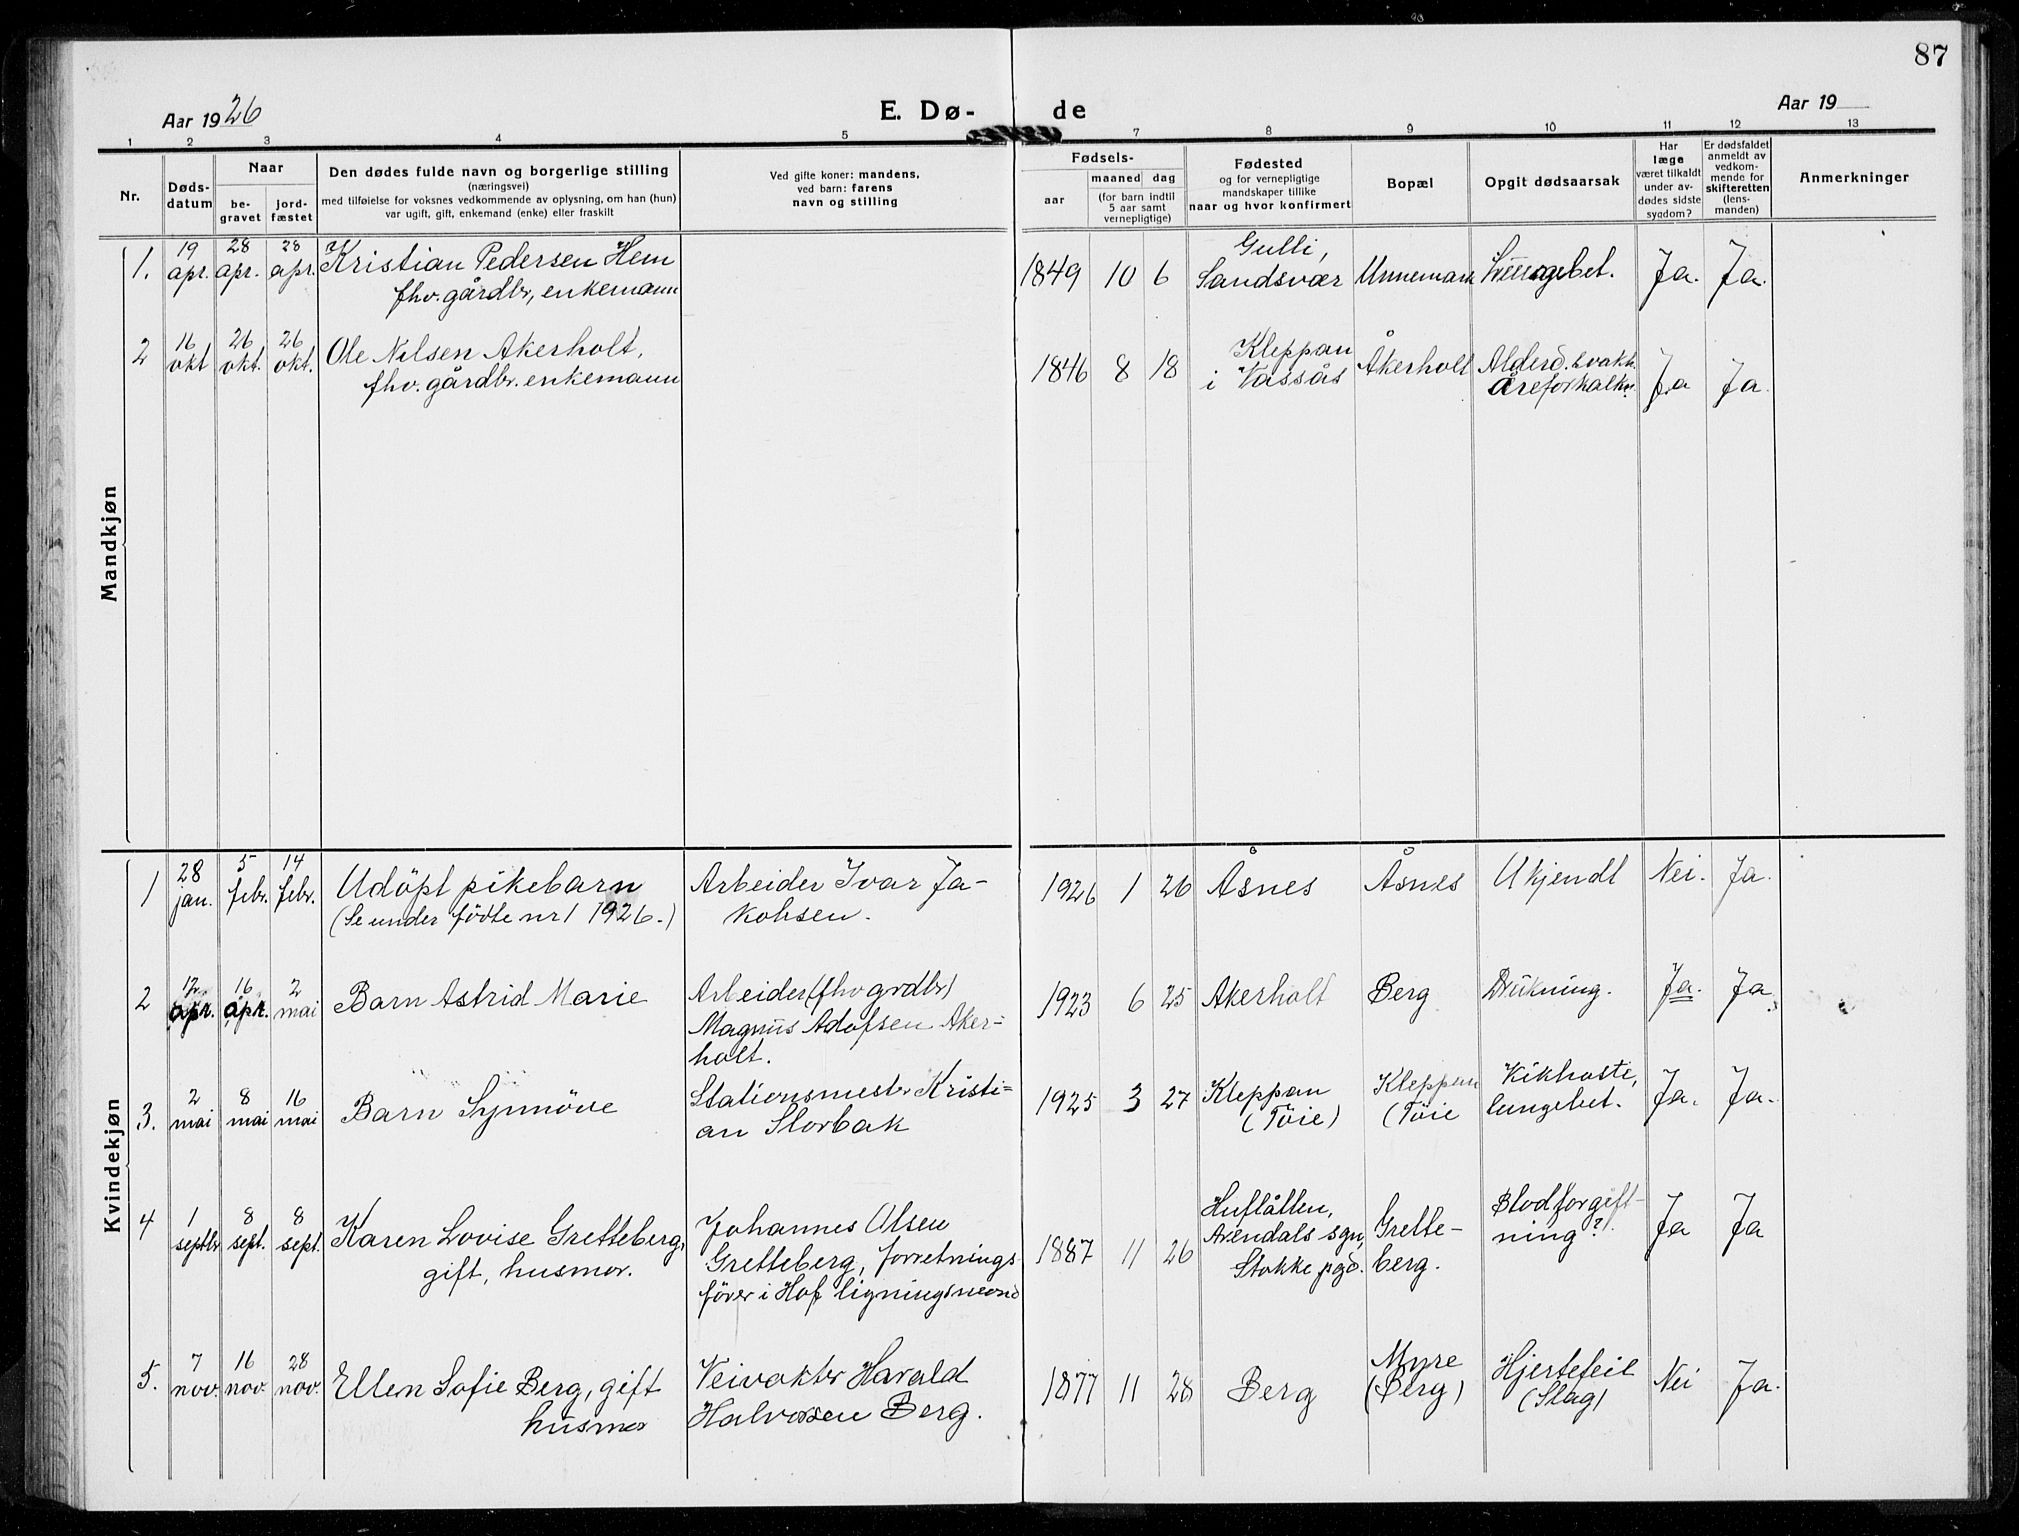 87
Aar 1926
E. Dø-
de
Aar 19
1 2 3 4 5 7 8 9 10 11 12 13
Nr.
Døds-
datum
Naar
be-
gravet
jord-
fæstet
Den dødes fulde navn og borgerlige stilling
(næringsvei)
med tilføielse for voksnes vedkommende av oplysning, om han (hun)
var ugift, gift, enkemand (enke) eller fraskilt
Ved gifte koner: mandens,
ved barn: farens
navn og stilling
Fødsels-
aar
maaned dag
(for barn indtil
5 aar samt
vernepligtige)
Fødested
og for vernepligtige
mandskaper tillike
naar og hvor konfirmert
Bopæl
Opgit dødsaarsak
Har
læge
været tilkaldt
under av-
dødes sidste
sygdom?
Er dødsfaldet
anmeldt av
vedkom-
mende for
skifteretten
(lens-
manden)
Anmerkninger
Mandkjøn
1. 19 apr. 28 apr. 28 apr. Kristian Pedersen Hem
fhv. gårdbr, enkemann
1849 10 6 Gulli,
Sandsvær Unnemark Ja. Ja.
2 16 okt 26 okt. 26 okt. Ole Nilsen Akerholt,
fhv. gårdbr. enkemann
1846 8 18 Kleppan
i Vassås Åkerholt Alderd. svakh.
Åreforkalkn. Ja Ja.
Kvindekjøn
1 28 jan. 5 febr. 14 febr. Udöpt pikebarn
(Se under födte nr 1 1926.)
Arbeider Ivar Ja-
kobsen.
1926 1 26 Åsnes Åsnes Ukjendt Nei. Ja.
2 apr. 16 apr. 2 mai Barn Astrid Marie
Arbeider (fhv grdbr)
Magnus Adofsen Aker-
holt.
1923 6 25 Akerholt Berg Drukning. Ja. Ja.
3. 2 mai 8 mai 16 mai Barn Synnöve
Stationsmester Kristi-
an Storbak
1925 3 27 Kleppan
(Töie)
Kleppan
(Töie
Kikhoste,
lungebet. Ja. Ja.
4 1 septbr 8 sept. 8 sept. Karen Lovise Gretteberg,
gift, husmor.
Johannes Olsen
Gretteberg, forretnings
förer i Hof ligningsnevnd
1887 11 26
Arendals sgn,
Stokke pgd.
Grette-
berg.
Blodforgift-
ning?! Ja Ja
5. 7 nov. 16 nov. 28 nov. Ellen Sofie Berg, gift
husmor
Veivokter Harald
Halvorsen Berg.
1877 11 28 Berg
Myre
(Berg)
Hjertefeil
(Slag) Nei Ja.